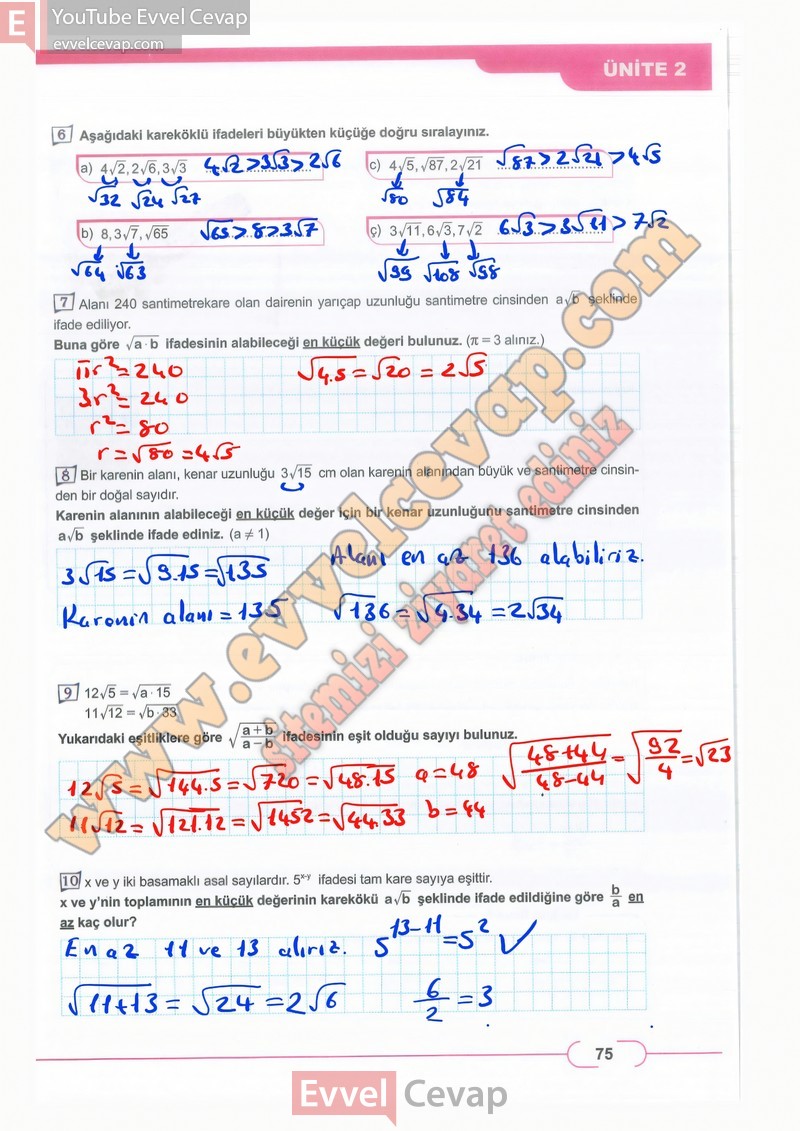 YouTube Evvel Cevap
evvelcevap.com
E
ÜNİTE 2
6 Aşağıdaki kareköklü ifadeleri büyükten küçüğe doğru sıralayınız.
a) 4√2, 2√6, 3√3 4√2 > 3√3 > 2√6
√32 √24 √27
c) 4√5, √87, 2√21 √87 > 2√21 > 4√5
√80 √84
b) 8, 3√7, √65 √65 > 8 > 3√7
√64 √63
ç) 3√11, 6√3, 7√2 6√3 > 3√11 > 7√2
√99 √108 √98
7 Alanı 240 santimetrekare olan dairenin yarıçap uzunluğu santimetre cinsinden a√b şeklinde
ifade ediliyor.
Buna göre √a·b ifadesinin alabileceği en küçük değeri bulunuz. (π = 3 alınız.)
πr² = 240 √4.5 = √20 = 2√5
3r² = 240
r² = 80
r = √80 = 4√5
8 Bir karenin alanı, kenar uzunluğu 3√15 cm olan karenin alanından büyük ve santimetre cinsin-
den bir doğal sayıdır.
Karenin alanının alabileceği en küçük değer için bir kenar uzunluğunu santimetre cinsinden
a√b şeklinde ifade ediniz. (a ≠ 1)
3√15 = √9.15 = √135 Alanı en az 136 alabiliriz.
Karenin alanı = 135 √136 = √4.34 = 2√34
9 12√5 = √a·15
11√12 = √b·33
Yukarıdaki eşitliklere göre √(a+b)/(a−b) ifadesinin eşit olduğu sayıyı bulunuz.
12√5 = √144.5 = √720 = √48.15 a = 48 √(48+44)/(48-44) = √92/4 = √23
11√12 = √121.12 = √1452 = √44.33 b = 44
10 x ve y iki basamaklı asal sayılardır. 5ˣ⁻ʸ ifadesi tam kare sayıya eşittir.
x ve y'nin toplamının en küçük değerinin karekökü a√b şeklinde ifade edildiğine göre b/a en
az kaç olur?
En az 11 ve 13 alırız. 5¹³⁻¹¹ = 5² ✓
√11+13 = √24 = 2√6 6/2 = 3
75
www.evvelcevap.com
sitemizi ziyaret ediniz
Evvel Cevap